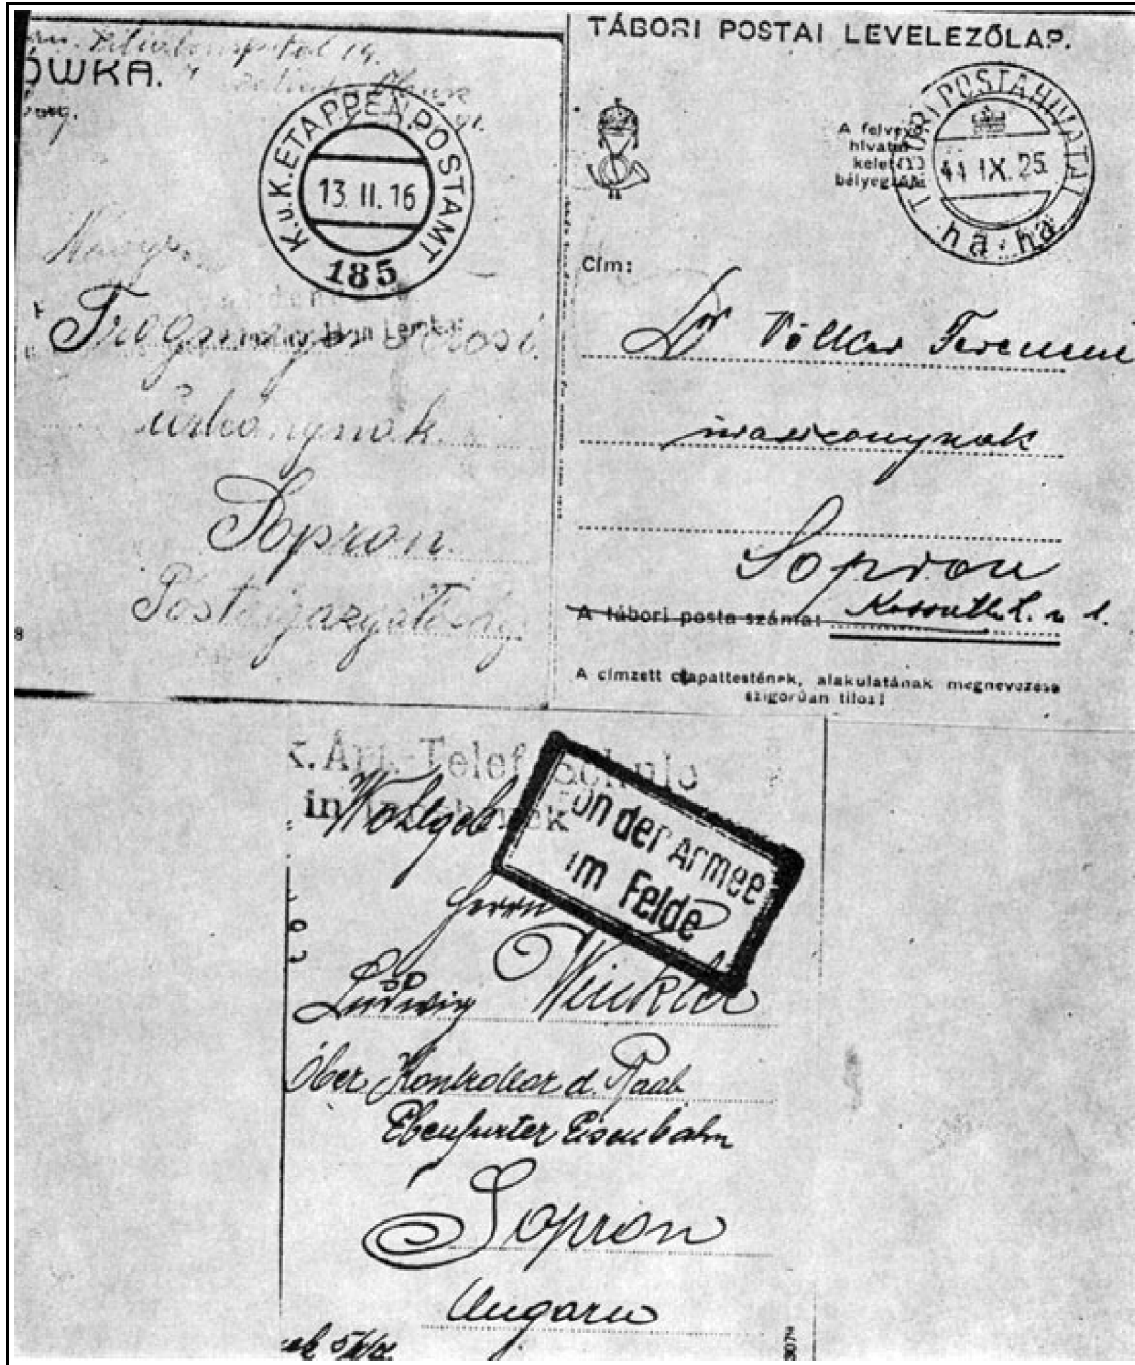 ÓWKA.
K.u.K. ETAPPENPOSTAMT
13 II. 16
185
Sopron
Postaigazgatóság
8
TÁBORI POSTAI LEVELEZŐLAP.
A felvevő
hivatal
keleti
bélyegzője
TÁBORI POSTAHIVATAL
41 IX. 25.
há há
Cím:
Dr Völker Ferencné
úrasszonynak
Sopron
A tábori posta száma: Kossuth L. u 1.
A címzett csapattestének, alakulatának megnevezése
szigorúan tilos!
k. Arm.-Telef. Schule
in
Von der Armee
im Felde
Wohlgeb
Herrn
Ludwig Winkler
Ober Kontrollor d. Raab
Ebenfurter Eisenbahn
Sopron
Ungarn